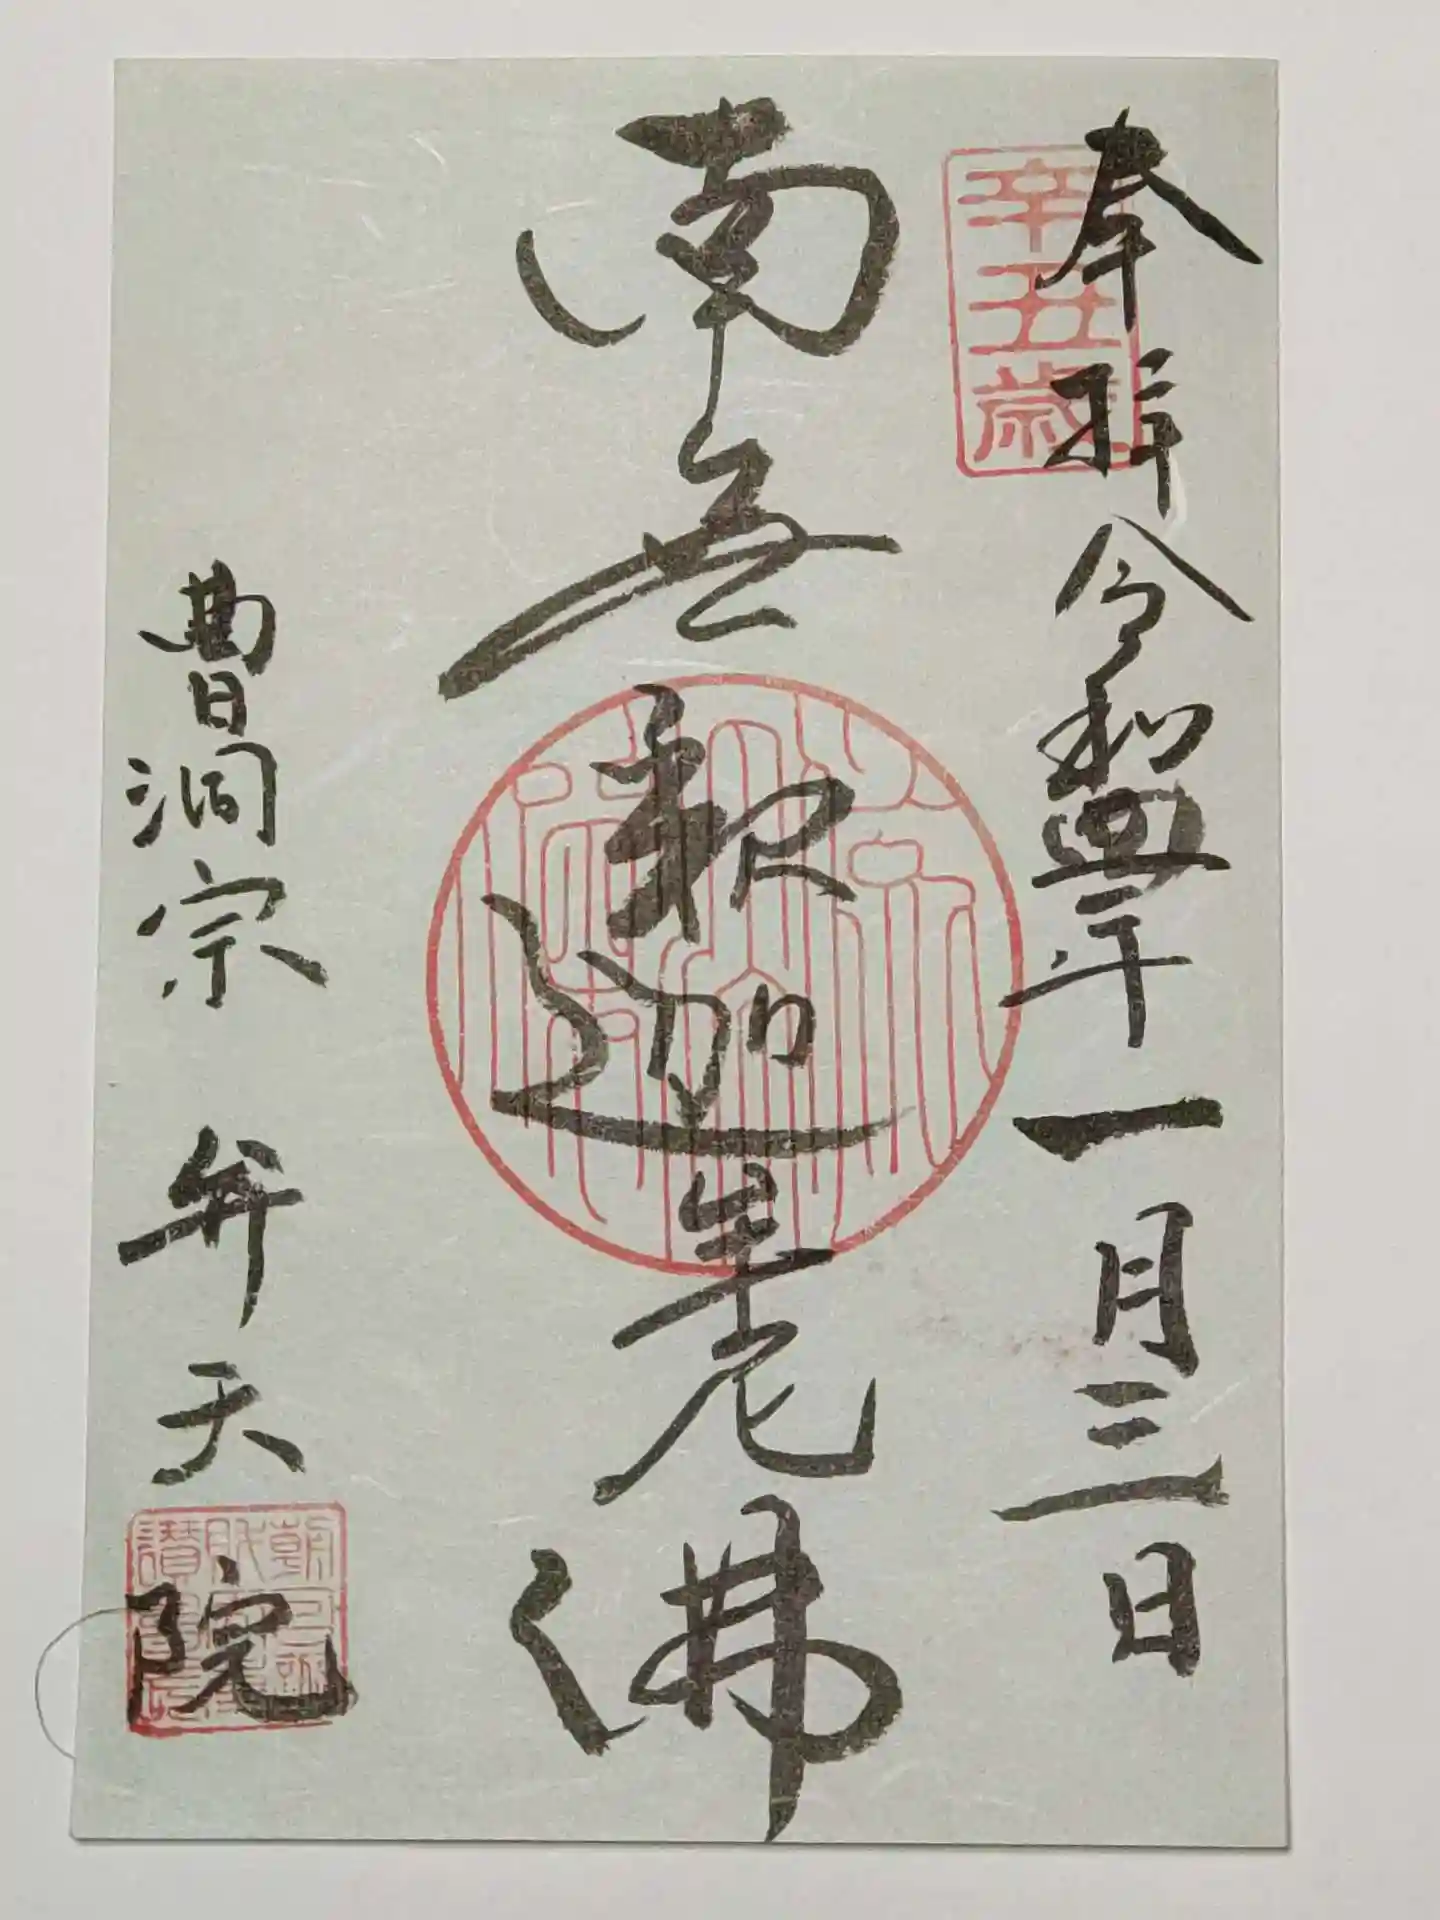 辛丑歳
奉拝 令和年一月三日
南無釈迦牟尼佛
曹洞宗 弁天院